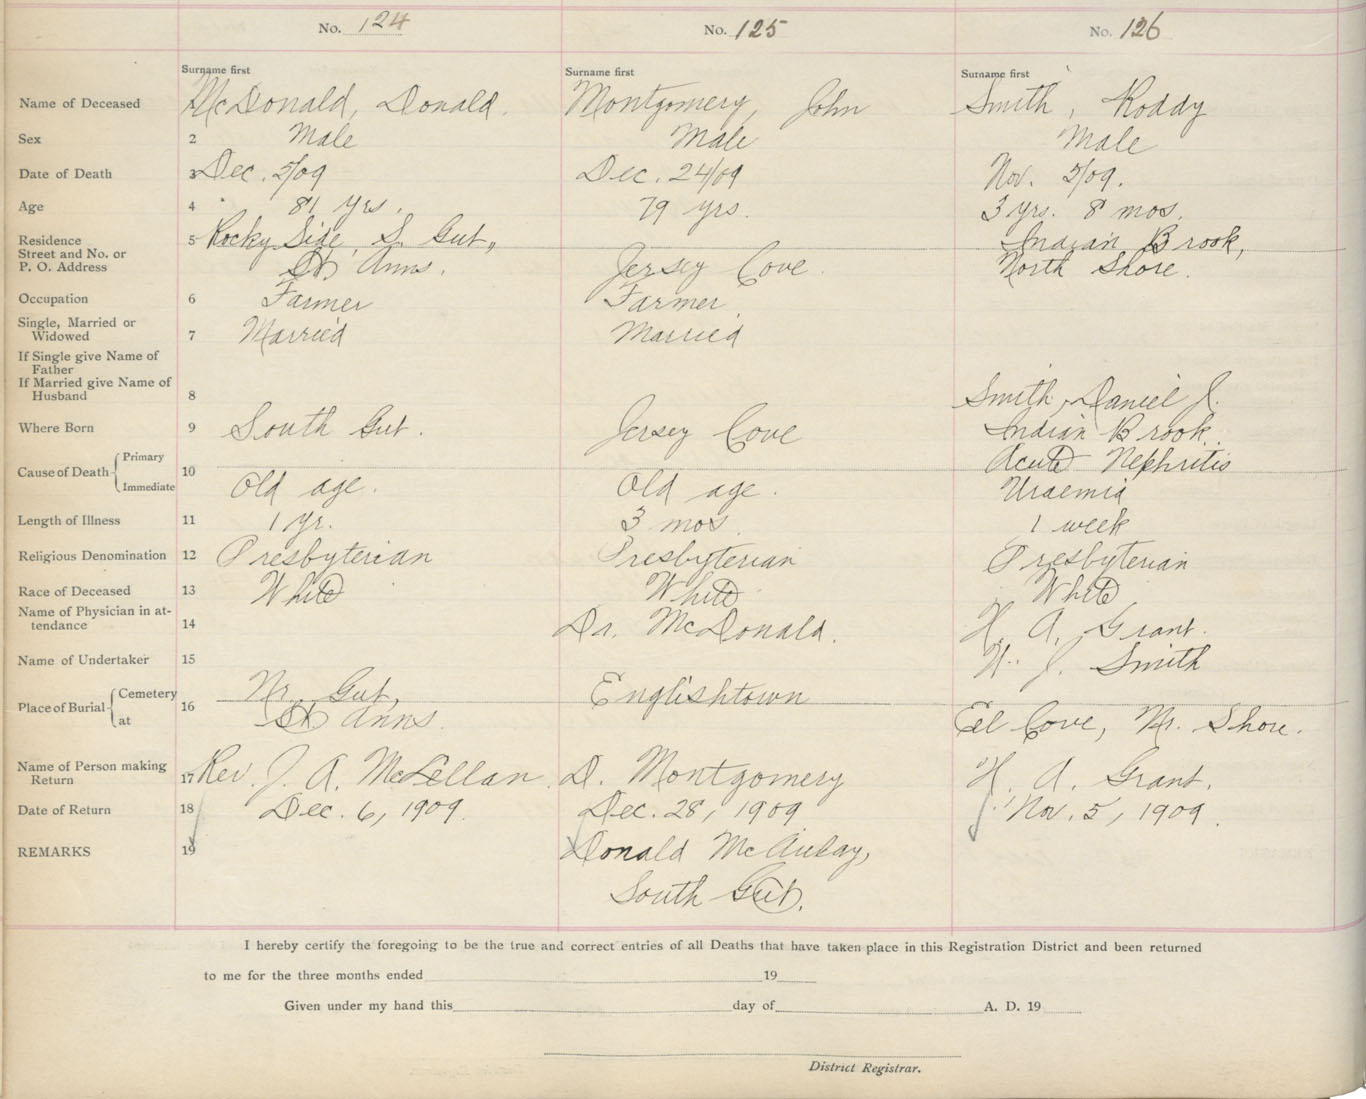 No. 124 No. 125 No. 126
Surname first Surname first Surname first
Name of Deceased McDonald, Donald. Montgomery, John Smith, Roddy
Sex 2 Male Male Male
Date of Death 3 Dec. 5/09 Dec. 24/09 Nov. 5/09.
Age 4 81 yrs. 79 yrs. 3 yrs. 8 mos.
Residence 5 Rocky Side, S. Gut,, Indian Brook,
Street and No. or
P. O. Address St Anns. Jersey Cove. North Shore.
Occupation 6 Farmer Farmer
Single, Married or
Widowed 7 Married Married
If Single give Name of
Father
If Married give Name of
Husband 8 Smith, Daniel J.
Where Born 9 South Gut. Jersey Cove Indian Brook.
Cause of Death Primary 10 Acute Nephritis
Immediate Old age. Old age. Uraemia
Length of Illness 11 1 yr. 3 mos. 1 week
Religious Denomination 12 Presbyterian Presbyterian Presbyterian
Race of Deceased 13 White White White
Name of Physician in at-
tendance 14 Dr. McDonald. H. A. Grant.
Name of Undertaker 15 J. Smith
Place of Burial Cemetery 16 Nr. Gut, Englishtown
at St Anns. Eel Cove, Nr. Shore.
Name of Person making
Return 17 Rev. J. A. McLellan. D. Montgomery H. A. Grant.
Date of Return 18 Dec. 6, 1909. Dec. 28, 1909 Nov. 5, 1909.
REMARKS 19 Donald McAulay,
South Gut.
I hereby certify the foregoing to be the true and correct entries of all Deaths that have taken place in this Registration District and been returned
to me for the three months ended 19
Given under my hand this day of A. D. 19
District Registrar.